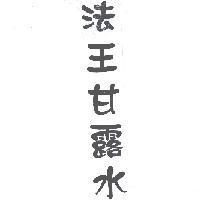 法王甘露水